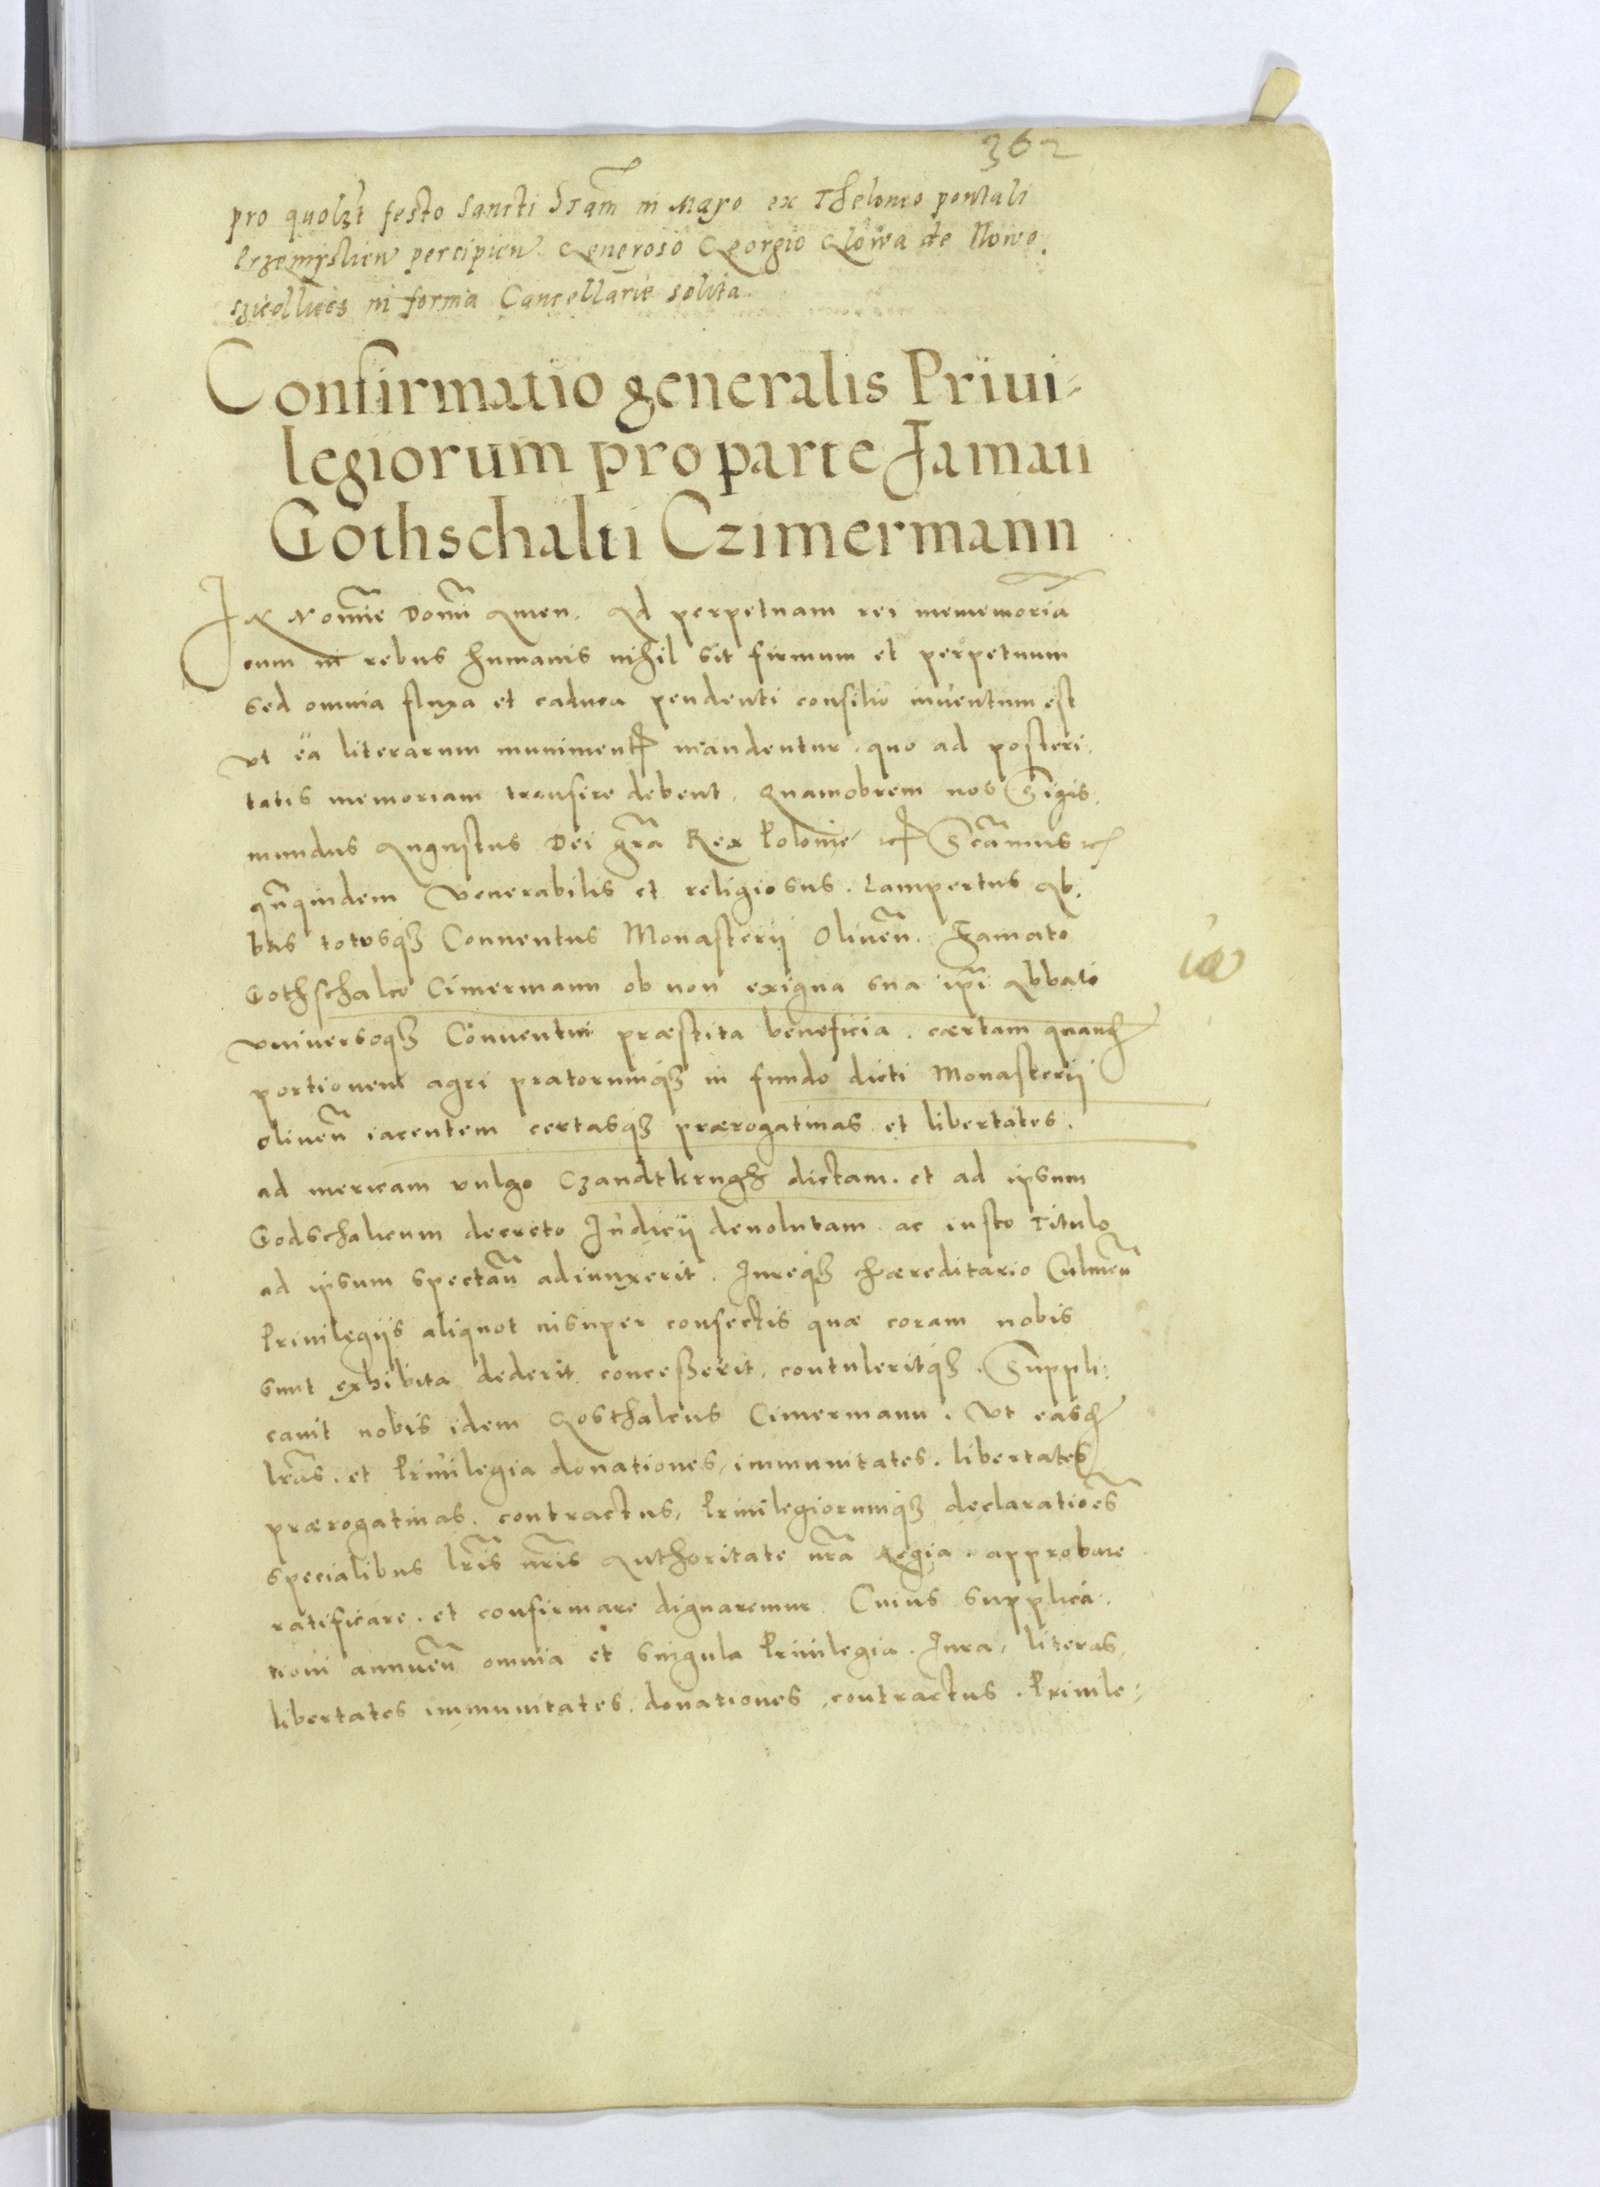 362
pro quolʒt festo Sancti Stañ in Mayo ex Theloneo pontali
Przemyslien percipien Generoso Georgio Glowa de Nowo.
szieollnies in forma Cancellariae solita.
Confirmatio generalis Priui-
legiorum pro parte Famati
Gothschalti Czimermann
In Noĩe Domĩ Amen. Ad perpetuam rei mememoriã
cum in rebus humanis nihil sit firmum et perpetuum
sed omnia fluxa et caduca pendenti consilio inuentum est
vt ea literarum muniment mandentur. quo ad posteri-
tatis memoriam transire debent. Quamobrem nos Sigis-
mundus Augustus Dei gr̃a Rex Polonie etc Sc̃amus etc
qñquidem Venerabilis et religiosus. Lampertus Ab-
bas totusqȝ Conuentus Monasterij Oliueñ. Famato
Gothschalco Cimermann ob non exigua sua ip̃i Abbati
Vniuersoqȝ Conuentui præstita beneficia. cærtam quand
portionem agri pratorumqȝ in fundo dicti Monasterij
Oliueñ iacentem certasqȝ prærogatiuas et libertates.
ad mericam vulgo Czandtkrugh dictam. et ad ipsum
Godschalcum decreto Iudicij deuolutam ac iusto Titulo
ad ipsum spectañ adiunxerit. Iureqȝ hæreditario Culmeñ
Priuilegijs aliquot insuper confectis quæ coram nobis
sunt exhibita dederit concesserit. contuleritqȝ. Suppli-
cauit nobis idem Gosthalcus Cimermann. Vt easd
lr̃as. et Priuilegia donationes, immunitates. libertates
prærogatiuas. contractus, Priuilegiorumqȝ declaratiões
specialibus lr̃is nr̃is Authoritate nr̃a Regia. approbare
ratificare. et confirmare dignaremur. Cuius supplica-
tioni annueñ omnia et singula Priuilegia. Iura, literas,
libertates immunitates. donationes, contractus. Priuile-